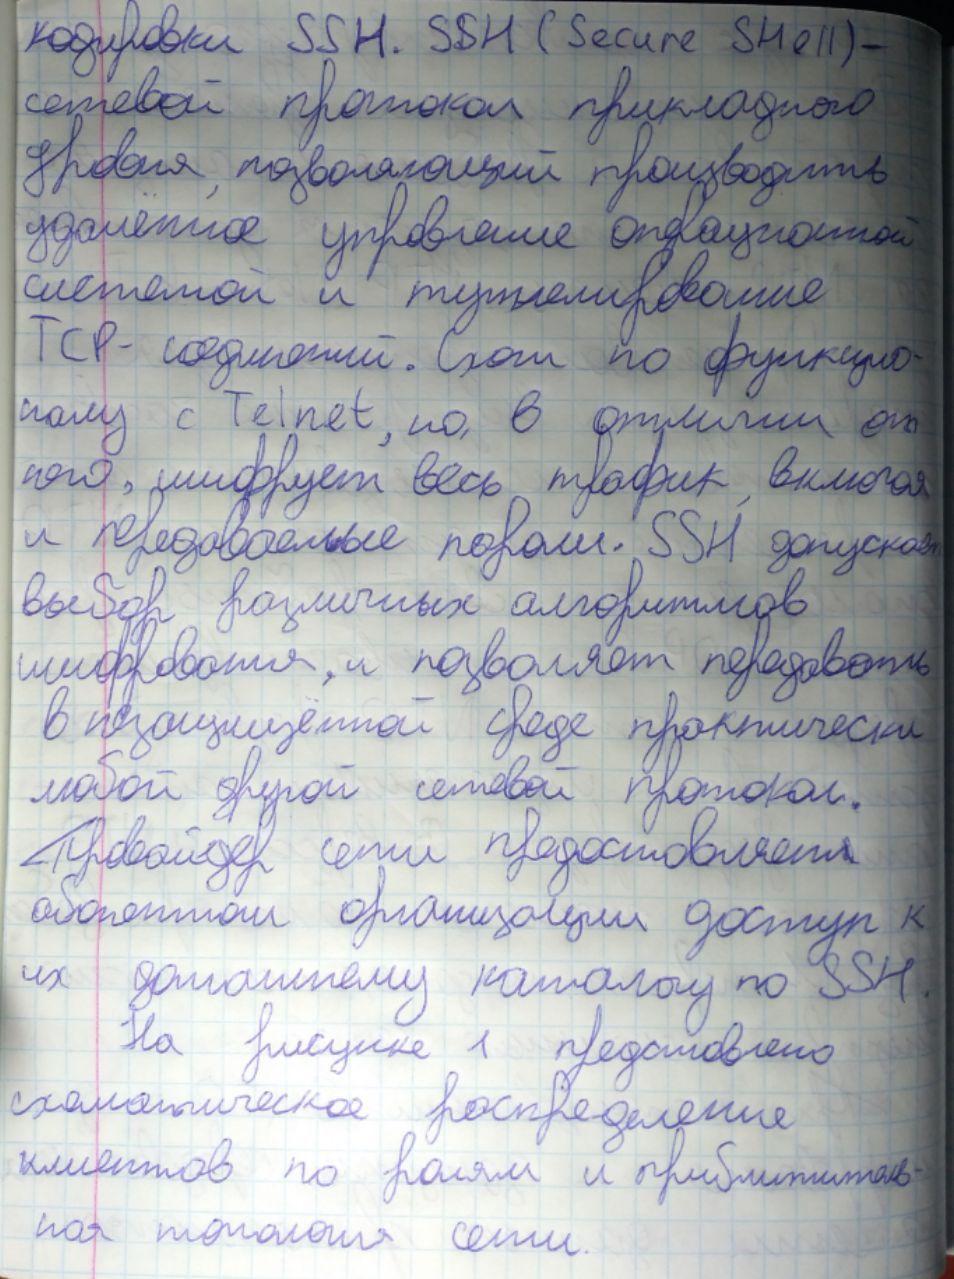 кодировки SSH. SSH (Secure SHell) -
сетевой протокол прикладного
уровня, позволяющий производить
удалённое управление операционной
системой и туннелирование
TCP- соединений. Схож по функцио-
налу с Telnet, но, в отличии от
него, шифрует весь трафик, включая
и передаваемые пароли. SSH допускает
выбор различных алгоритмов
шифрования, и позволяет передавать
в незащищённой среде практически
любой другой сетевой протокол.
Провайдер сети предоставляет
абонентам организации доступ к
их домашнему каталогу по SSH.
На рисунке 1 представлено
схематическое распределение
клиентов по ролям и приблизитель-
ная топология сети.